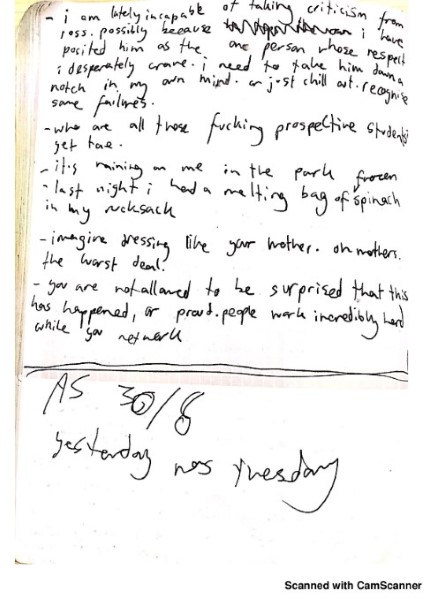 - i am lately incapable of taking criticism from
ross. possibly because i have
posited him as the one person whose respect
i desperately crave. i need to take him down a
notch in my own mind. or just chill out. recognise
some failures.
- who are all those fucking prospective students
get
- it's raining on me in the park
- last night i had a melting bag of frozen spinach
in my rucksack
- imagine dressing like your mother. oh mothers.
the worst deal.
- you are not allowed to be surprised that this
has happened, or proud. people work incredibly hard
while you network
AS 30/8
yesterday was tuesday
Scanned with CamScanner